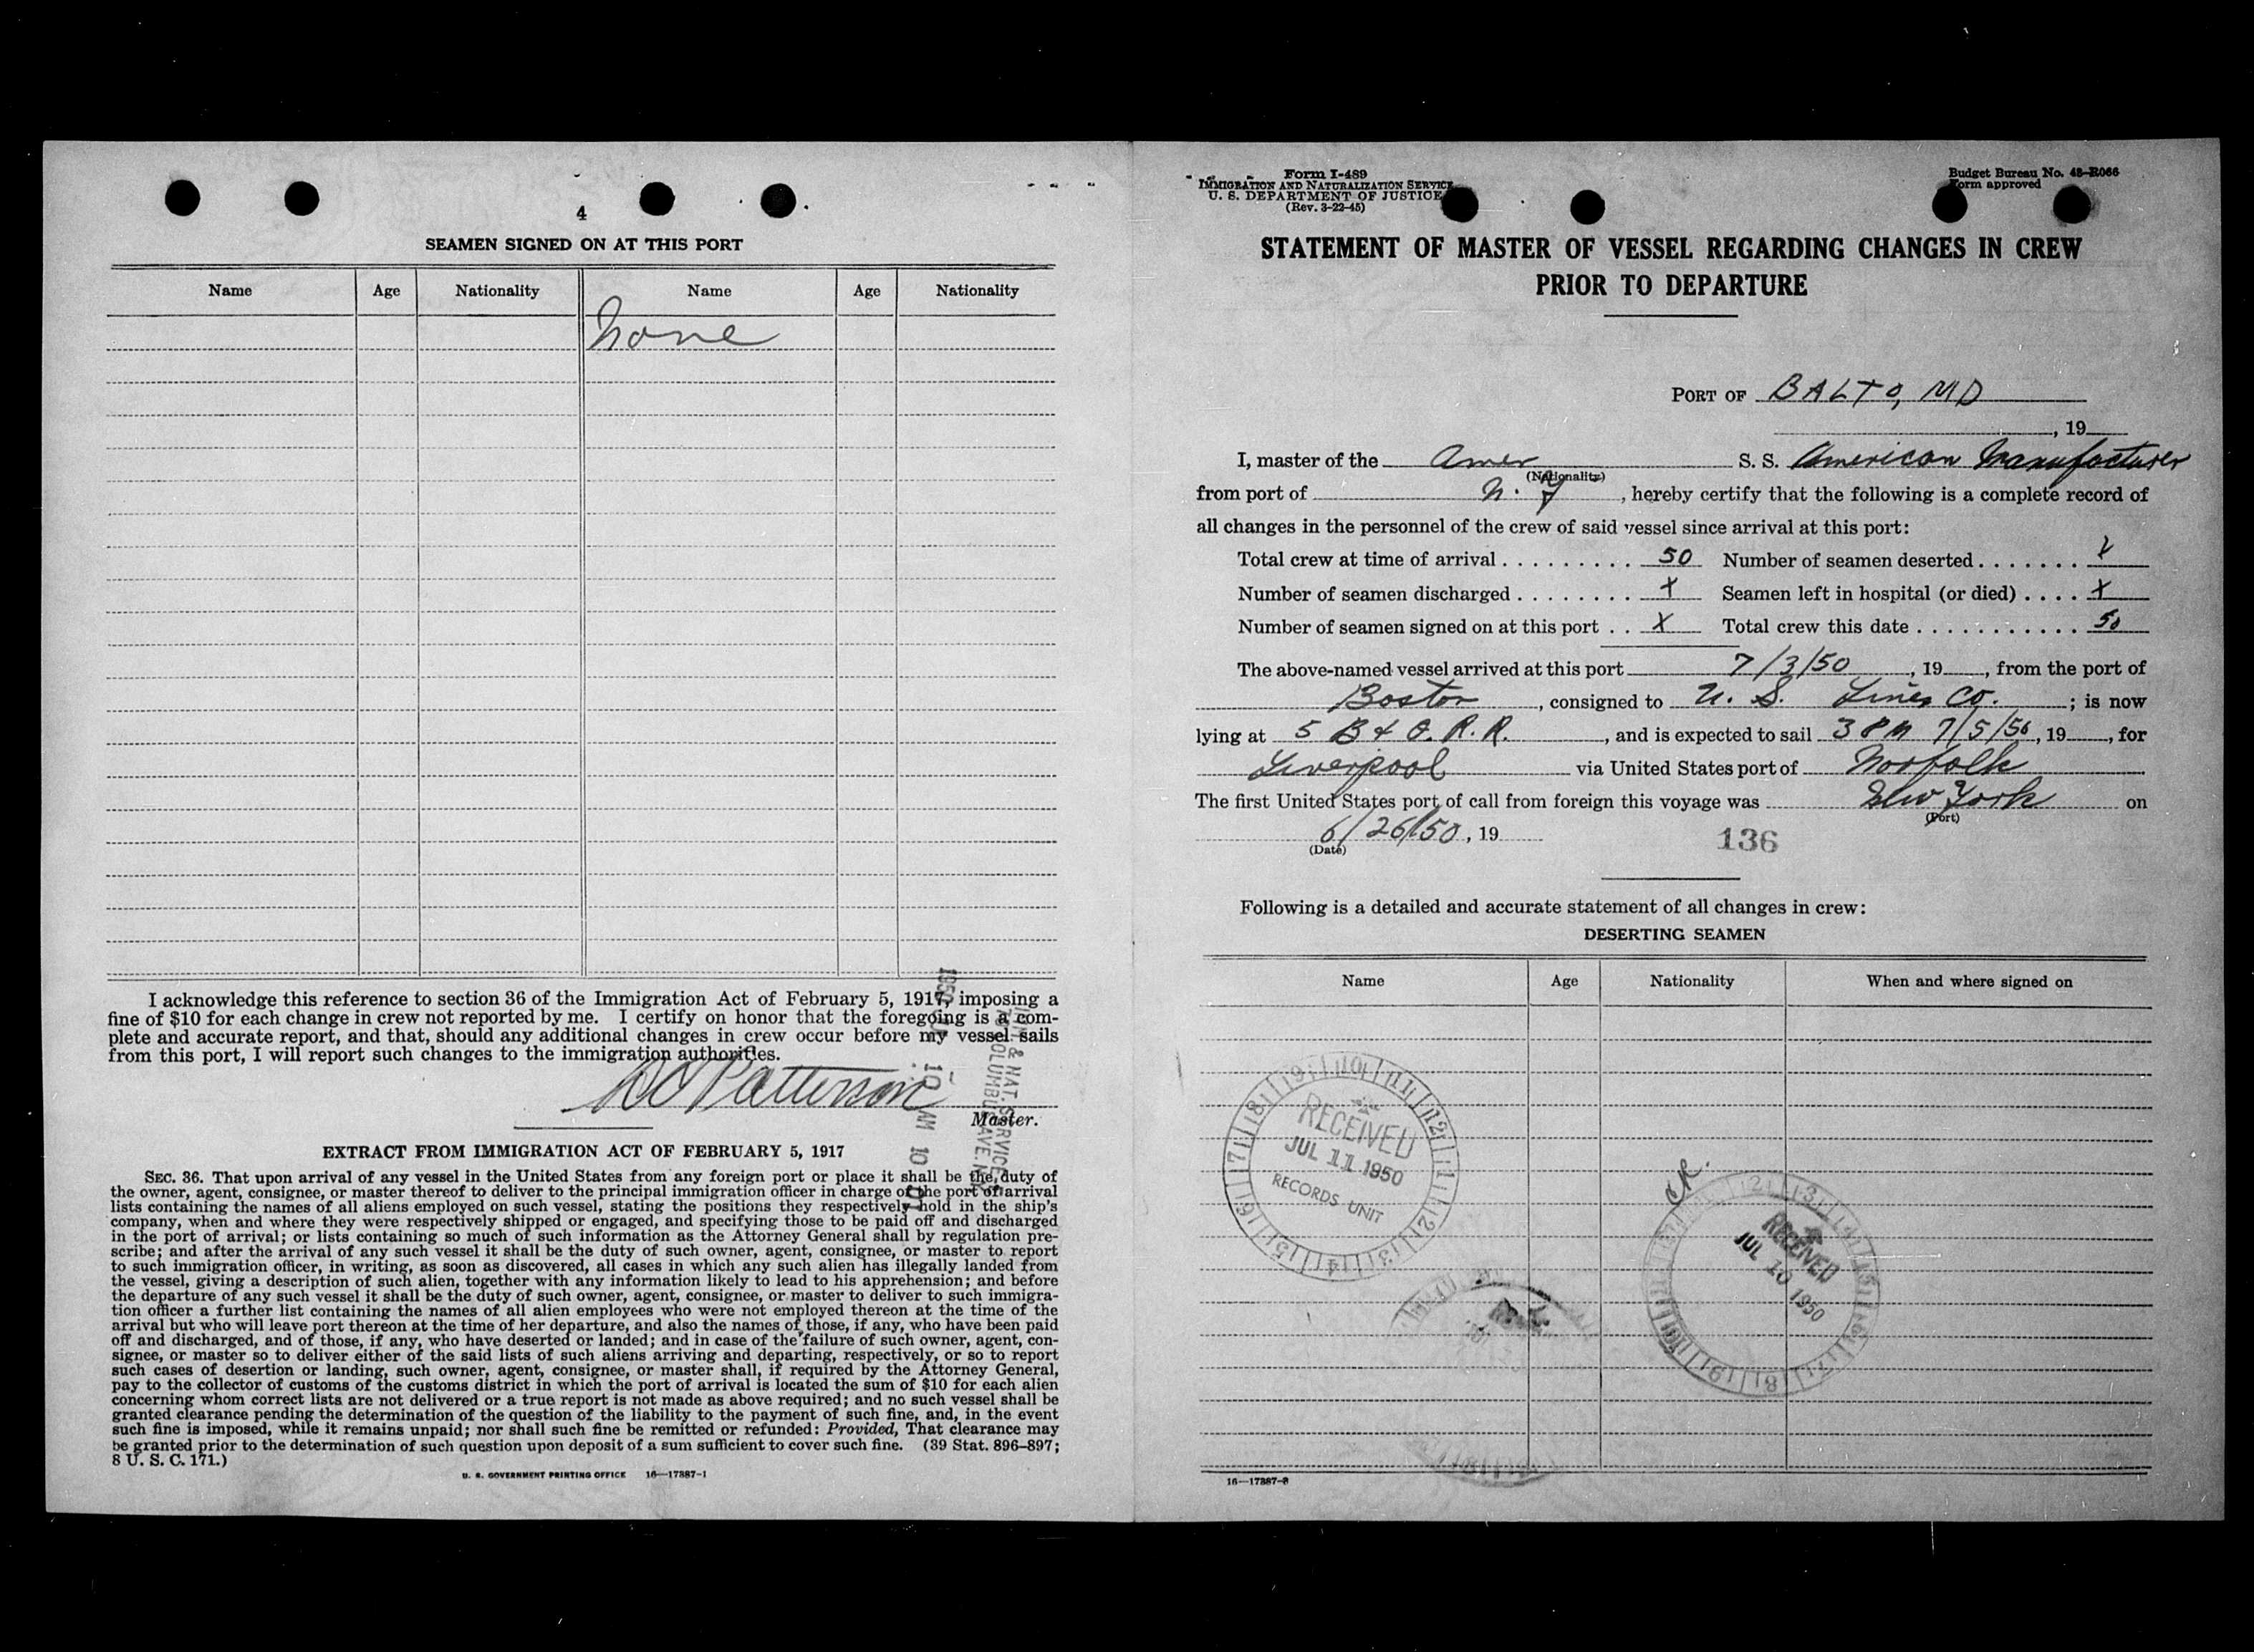 4
SEAMEN SIGNED ON AT THIS PORT
Name Age Nationality Name Age Nationality
None
I acknowledge this reference to section 36 of the Immigration Act of February 5, 1917, imposing a
fine of $10 for each change in crew not reported by me. I certify on honor that the foregoing is a com-
plete and accurate report, and that, should any additional changes in crew occur before my vessel sails
from this port, I will report such changes to the immigration authorities.
Patterson
Master.
1950
10 AM 10
IMM. & NAT. SERVICE
70 COLUMBUS AVE. N.Y.
EXTRACT FROM IMMIGRATION ACT OF FEBRUARY 5, 1917
SEC. 36. That upon arrival of any vessel in the United States from any foreign port or place it shall be the duty of
the owner, agent, consignee, or master thereof to deliver to the principal immigration officer in charge of the port of arrival
lists containing the names of all aliens employed on such vessel, stating the positions they respectively hold in the ship's
company, when and where they were respectively shipped or engaged, and specifying those to be paid off and discharged
in the port of arrival; or lists containing so much of such information as the Attorney General shall by regulation pre-
scribe; and after the arrival of any such vessel it shall be the duty of such owner, agent, consignee, or master to report
to such immigration officer, in writing, as soon as discovered, all cases in which any such alien has illegally landed from
the vessel, giving a description of such alien, together with any information likely to lead to his apprehension; and before
the departure of any such vessel it shall be the duty of such owner, agent, consignee, or master to deliver to such immigra-
tion officer a further list containing the names of all alien employees who were not employed thereon at the time of the
arrival but who will leave port thereon at the time of her departure, and also the names of those, if any, who have been paid
off and discharged, and of those, if any, who have deserted or landed; and in case of the failure of such owner, agent, con-
signee, or master so to deliver either of the said lists of such aliens arriving and departing, respectively, or so to report
such cases of desertion or landing, such owner, agent, consignee, or master shall, if required by the Attorney General,
pay to the collector of customs of the customs district in which the port of arrival is located the sum of $10 for each alien
concerning whom correct lists are not delivered or a true report is not made as above required; and no such vessel shall be
granted clearance pending the determination of the question of the liability to the payment of such fine, and, in the event
such fine is imposed, while it remains unpaid; nor shall such fine be remitted or refunded: Provided, That clearance may
be granted prior to the determination of such question upon deposit of a sum sufficient to cover such fine. (39 Stat. 896–897;
8 U. S. C. 171.)
U. S. GOVERNMENT PRINTING OFFICE 16—17887-1
Form I-489
IMMIGRATION AND NATURALIZATION SERVICE
U. S. DEPARTMENT OF JUSTICE
(Rev. 3-22-45)
Budget Bureau No. 43-R066
Form approved
STATEMENT OF MASTER OF VESSEL REGARDING CHANGES IN CREW
PRIOR TO DEPARTURE
PORT OF BALTO, MD
, 19
I, master of the Amer S. S. American Manufacturer
(Nationality)
from port of N. Y , hereby certify that the following is a complete record of
all changes in the personnel of the crew of said vessel since arrival at this port:
Total crew at time of arrival . . . . . . . . . . 50 Number of seamen deserted . . . . . . . X
Number of seamen discharged . . . . . . . . X Seamen left in hospital (or died) . . . . X
Number of seamen signed on at this port . . X Total crew this date . . . . . . . . . . . . 50
The above-named vessel arrived at this port 7/3/50 , 19 , from the port of
Boston , consigned to U. S. Lines Co. ; is now
lying at 5 B & O. R. R. , and is expected to sail 3 PM 7/5/50 , 19 , for
Liverpool via United States port of Norfolk
The first United States port of call from foreign this voyage was New York on
(Port)
6/26/50 , 19
(Date)
136
Following is a detailed and accurate statement of all changes in crew:
DESERTING SEAMEN
Name Age Nationality When and where signed on
RECEIVED
JUL 11 1950
RECORDS UNIT
RECEIVED
JUL 10 1950
16—17887-2